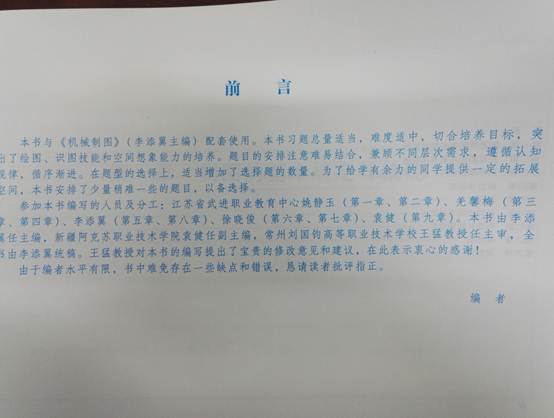 前 言
本书与《机械制图》(李添翼主编)配套使用。本书习题总量适当，难度适中，切合培养目标，突
出了绘图、识图技能和空间想象能力的培养。题目的安排注意难易结合，兼顾不同层次需求，遵循认知
规律，循序渐进。在题型的选择上，适当增加了选择题的数量。为了给学有余力的同学提供一定的拓展
空间，本书安排了少量稍难一些的题目，以备选择。
参加本书编写的人员及分工：江苏省武进职业教育中心姚静玉（第一章、第二章）、羌馨梅（第三
章、第四章）、李添翼（第五章、第八章）、徐晓俊（第六章、第七章）、袁健（第九章）。本书由李添
翼任主编，新疆阿克苏职业技术学院袁健任副主编，常州刘国钧高等职业技术学校王猛教授任主审，全
书由李添翼统稿。王猛教授对本书的编写提出了宝贵的修改意见和建议，在此表示衷心的感谢！
由于编者水平有限，书中难免存在一些缺点和错误，恳请读者批评指正。
编 者